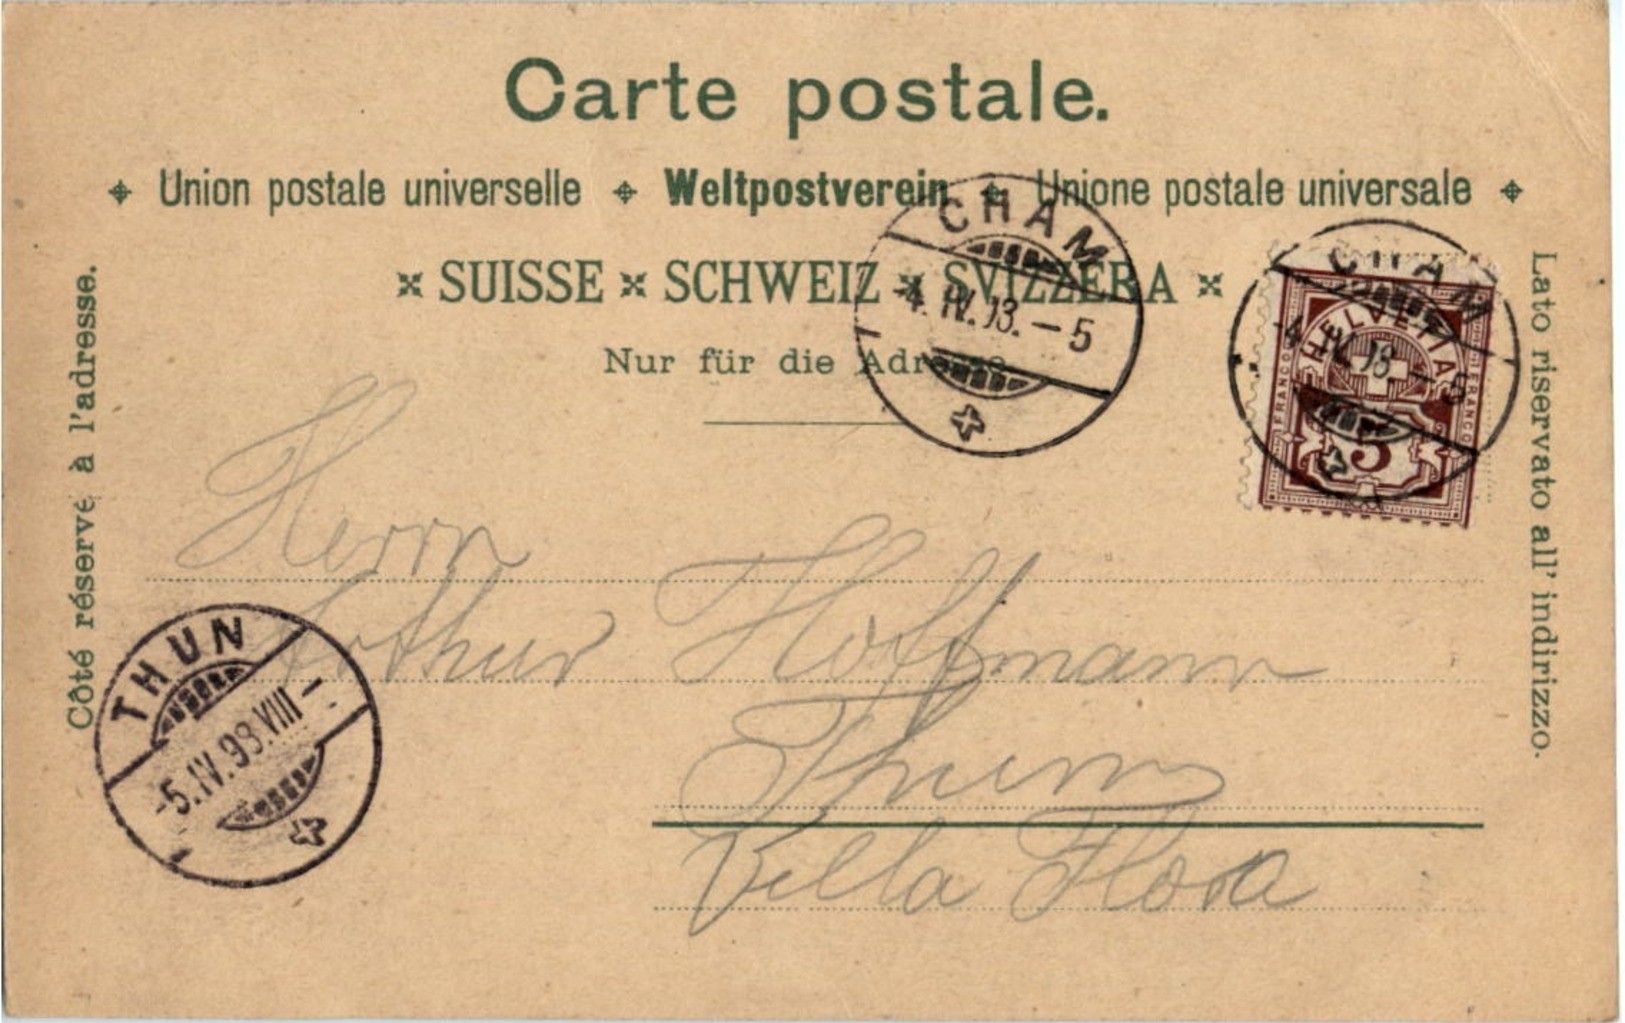 Carte postale.
Union postale universelle Weltpostverein Unione postale universale
SUISSE SCHWEIZ SVIZZERA
Nur für die Adresse
Côté réservé à l'adresse.
Lato riservato all' indirizzo.
CHAM
-4. IV. 93. - 5
CHAM
-4. IV. 98 - 5
HELVETIA
FRANCO
5
Herrn
Arthur Hoffmann
Thun
Villa Flora
THUN
-5. IV. 98. VIII -